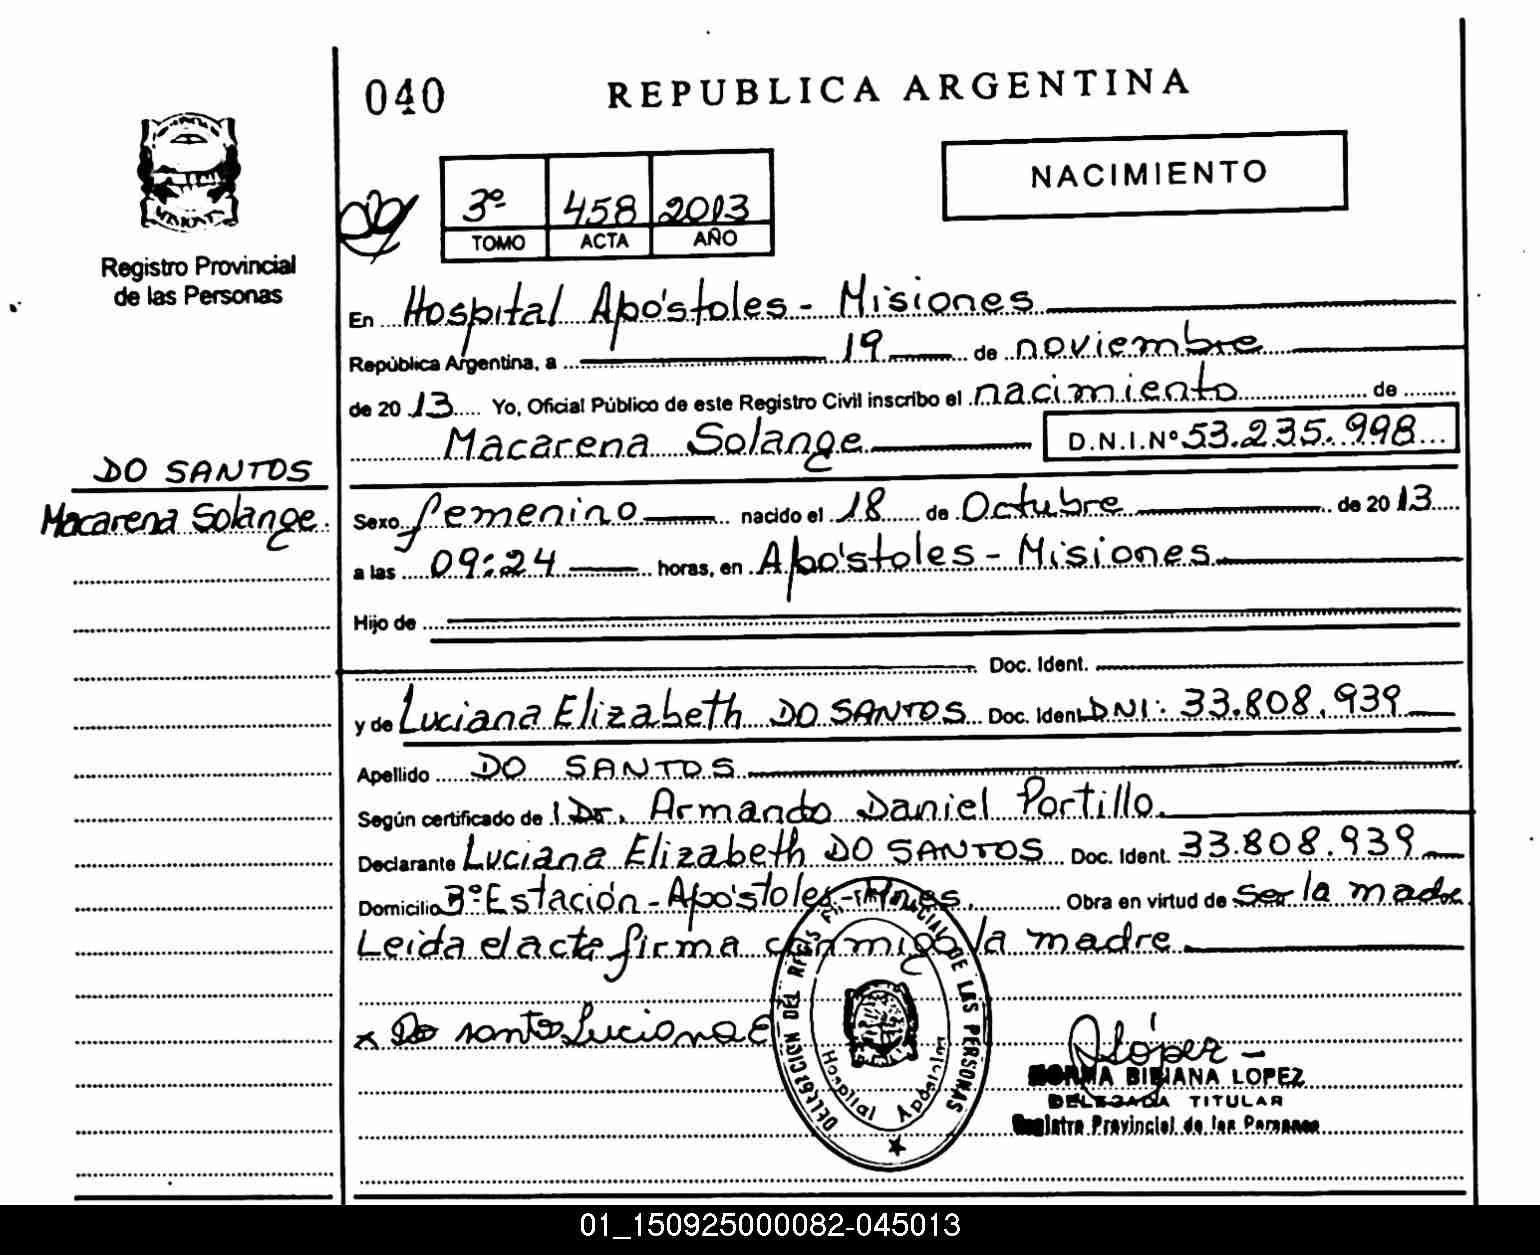 040
REPUBLICA ARGENTINA
NACIMIENTO
3º 458 2013
TOMO ACTA AÑO
Registro Provincial
de las Personas
En Hospital Apóstoles - Misiones
República Argentina, a 19 de noviembre
de 20 13 Yo, Oficial Público de este Registro Civil inscribo el nacimiento de
Macarena Solange D.N.I.Nº 53.235.998
DO SANTOS
Macarena Solange.
Sexo femenino nacido el 18 de Octubre de 20 13
a las 09:24 horas, en Apóstoles - Misiones
Hijo de
Doc. Ident.
y de Luciana Elizabeth DO SANTOS Doc. Ident. DNI: 33.808.939
Apellido DO SANTOS
Según certificado de l Dr. Armando Daniel Portillo.
Declarante Luciana Elizabeth DO SANTOS Doc. Ident. 33.808.939
Domicilio 3º Estación - Apóstoles - Mnes. Obra en virtud de ser la madre
Leída el acta firma conmigo la madre
x Do santos Luciana E
DELEGACION DEL REGISTRO PROVINCIAL DE LAS PERSONAS
Hospital Apóstoles
López
NORMA BIBIANA LOPEZ
DELEGADA TITULAR
Registro Provincial de las Personas
01_150925000082-045013